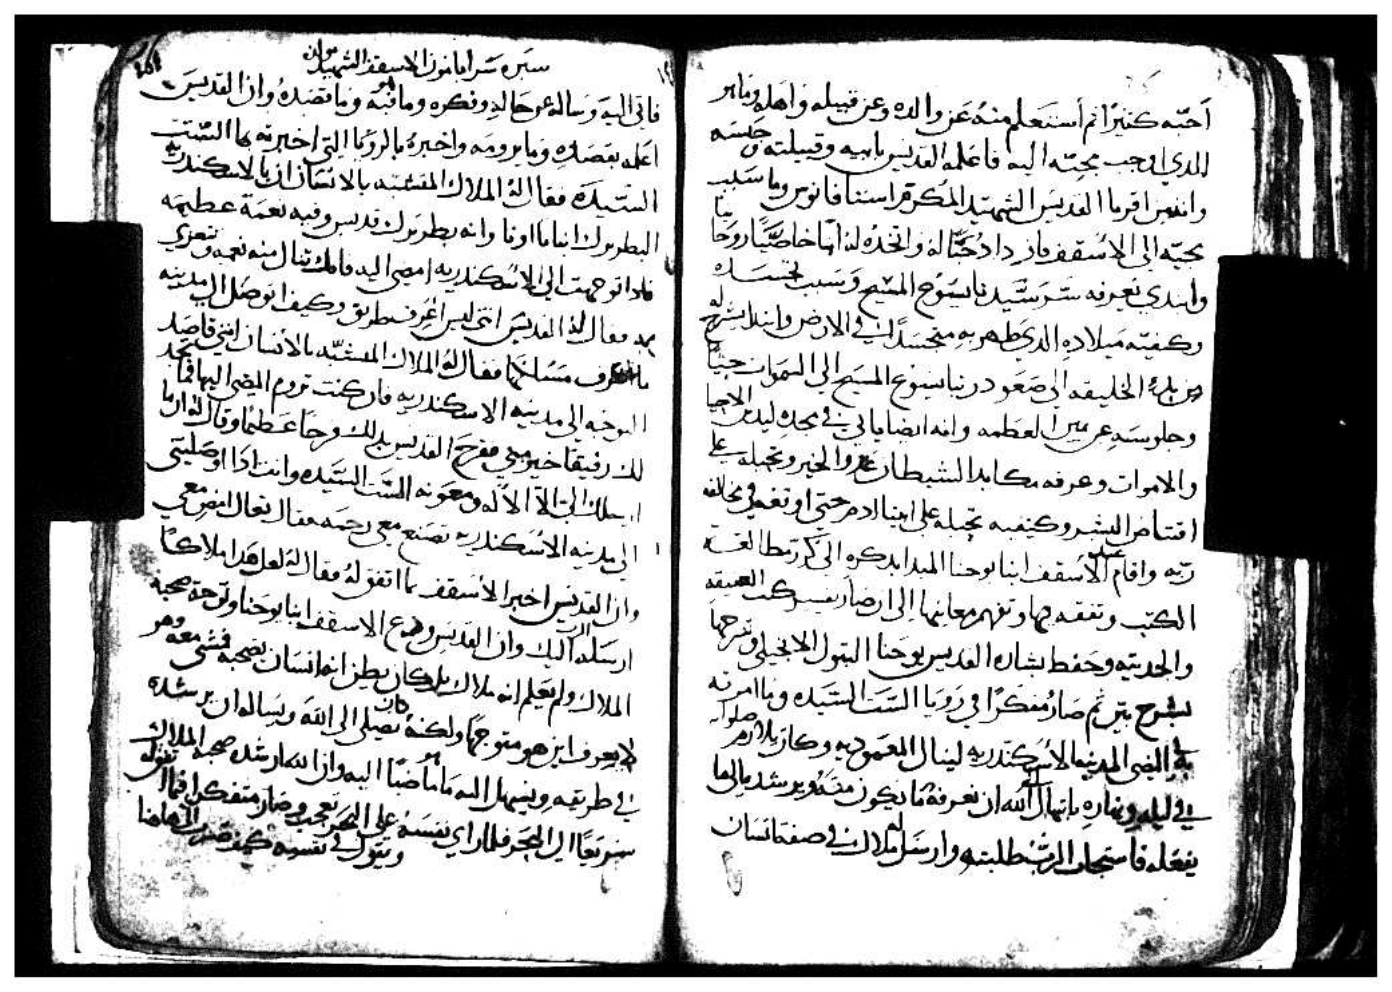 أحبه كثيرًا ثم أستعلم منه عن والده وعن قبيلته واهله وما هو
الذي اوجب مجيه اليه فاعلمه القديس بابيه وقبيلته وجنسه
وانه من اقربا القديس الشهيد المكرم اسنافانوس وما سبب
مجيه الي الاسقف فازداد حبًا له واتخده له ابنا خاصًا روحانيا
وابتدي يعرفه سر سيدنا يسوع المسيح وسبب تجسده
وكيفية ميلاده الدي ظهر به متجسدًا في الارض وابتدا يشرح له
من بدء الخليقه الي صعود ربنا يسوع المسيح الي السموات
وجلوسه عن يمين العظمه وانه ايضا ياتي في مجده ليدين الاحيا
والاموات وعرفه مكايد الشيطان عدو الخير وتحيله علي
اقتناص البشر وكيفيه تحيله علي ابينا ادم حتي اوقعه في مخالفة
ربه واقام الاسقف انبا يوحنا المبدا بدكره الي
الكتب وتفقه بها وتفهم معانيها الي ان صار يفسر كتب العتيقه
والحديثه وحفظ بشاره القديس يوحنا البتول الانجيلي وشرحها
بشرح بين ثم صار مفكرًا في رويا الست السيده وما امرته
به المضي المدينه الاسكندريه لينال المعموديه وكان يلازم صلواته
في ليله ونهاره بابتهال الي الله ان يعرفه ما يكون منه ويرشده الي ما
يفعله فاستجاب الرب طلبته وارسل له ملاك في صفة انسان
سيرة نسر ابامون الاسقف الشهيد
فاتي اليه وساله عن حاله وفكره وما قصده وان القديس
اعلمه بقصده وما يرومه واخبره بالرويا التي اخبرته بها الست
السيده فقال له الملاك المتشبه بالانسان ان بالاسكندريه
البطريرك انبا ثاونا وانه بطريرك قديس وفيه نعمة عظيمه
فادا توجهت الي الاسكندريه امضي اليه فانك تنال منه نعمه وتتعزي
به فقال له القديس انني ليس اعرف طريق وكيف اتوصل الي مدينه
ما اعرف مسلكها فقال له الملاك المتشبه بالانسان انني قاصد
التوجه الي مدينه الاسكندريه فان كنت تروم المضي اليها فما تجد
لك رفيقا خير مني ففرح القديس بدلك فرحًا عظيمًا وقال له
الاله ومعونه الست السيده وانت ادا اوصلتني
الي مدينه الاسكندريه تصنع معي رحمه فقال تعال امض معي
وان القديس اخبر الاسقف بما اتفق له فقال له لعل هدا ملاكًا
ارسله الرب اليك وان القديس ودع الاسقف انبا يوحنا وتوجه صحبة
الملاك ولم يعلم انه ملاك بل كان يظن انه انسان يصحبه فمشي معه وهو
لا يعرف اين هو متوجهًا ولكنه كان يصلي الي الله ويساله ان يرشده
في طريقه ويسهل اليه ما هو ماضيًا اليه وان الله ارشده صحبة الملاك
سريعًا الي البحر فلما راي نفسه علي البحر تعجب وصار متفكرًا فيما
ويقول في نفسه كيف حضرت الي هاهنا